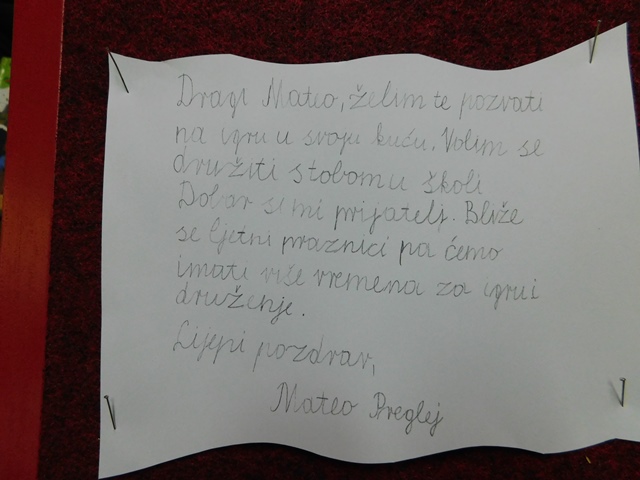 Dragi Mateo, želim te pozvati
na igru u svoju kuću. Volim se
družiti stobom u školi
Dobar si mi prijatelj. Bliže
se ljetni praznici pa ćemo
imati više vremena za igru i
druženje.
Lijepi pozdrav,
Mateo Preglej